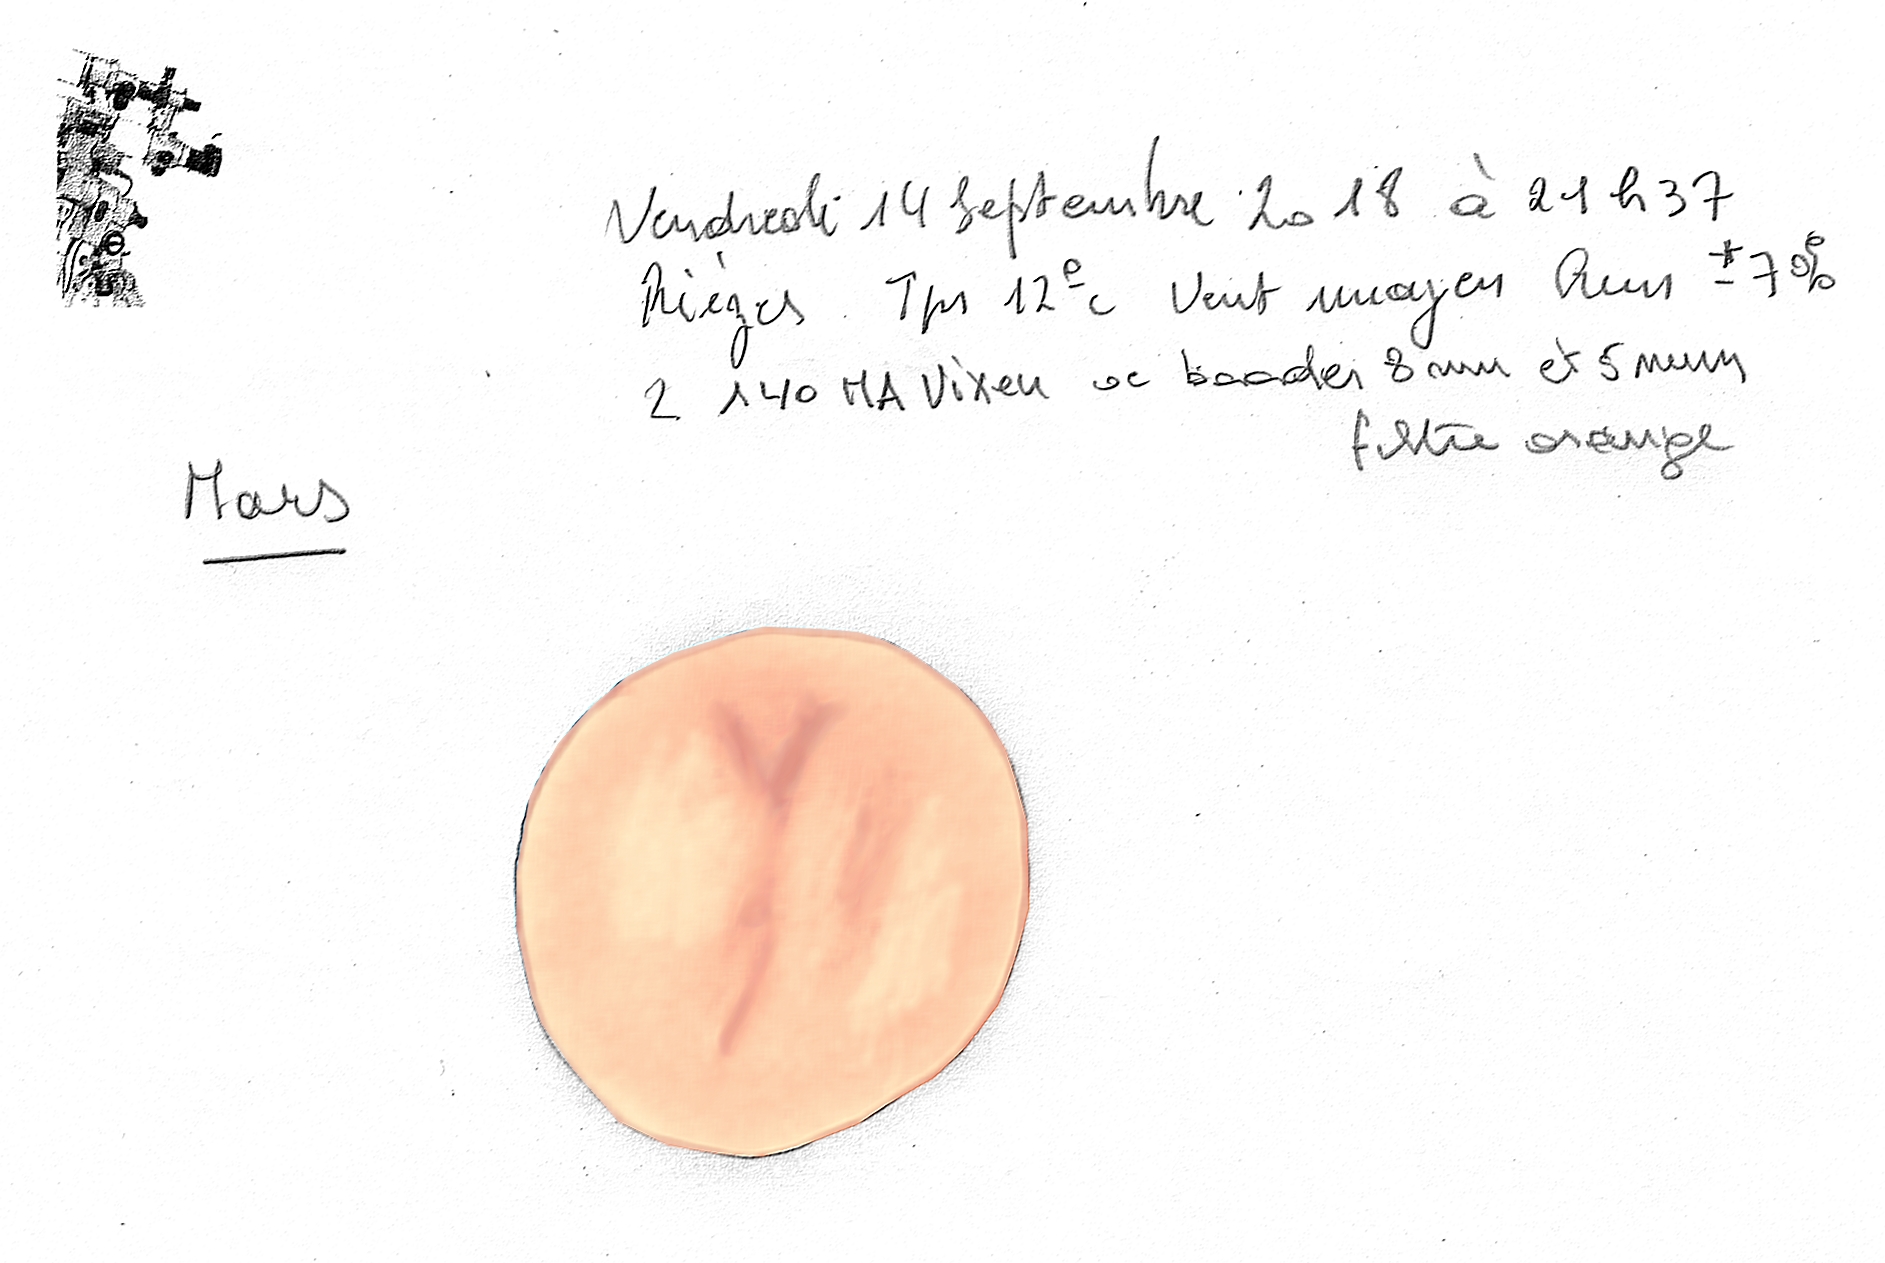 Vendredi 14 Septembre 2018 à 21h37
Rièzes Tps 12°c Vent moyen Hum ±70%
L 140 NA Vixen oc baader 8mm et 5mm
filtre orange
Mars